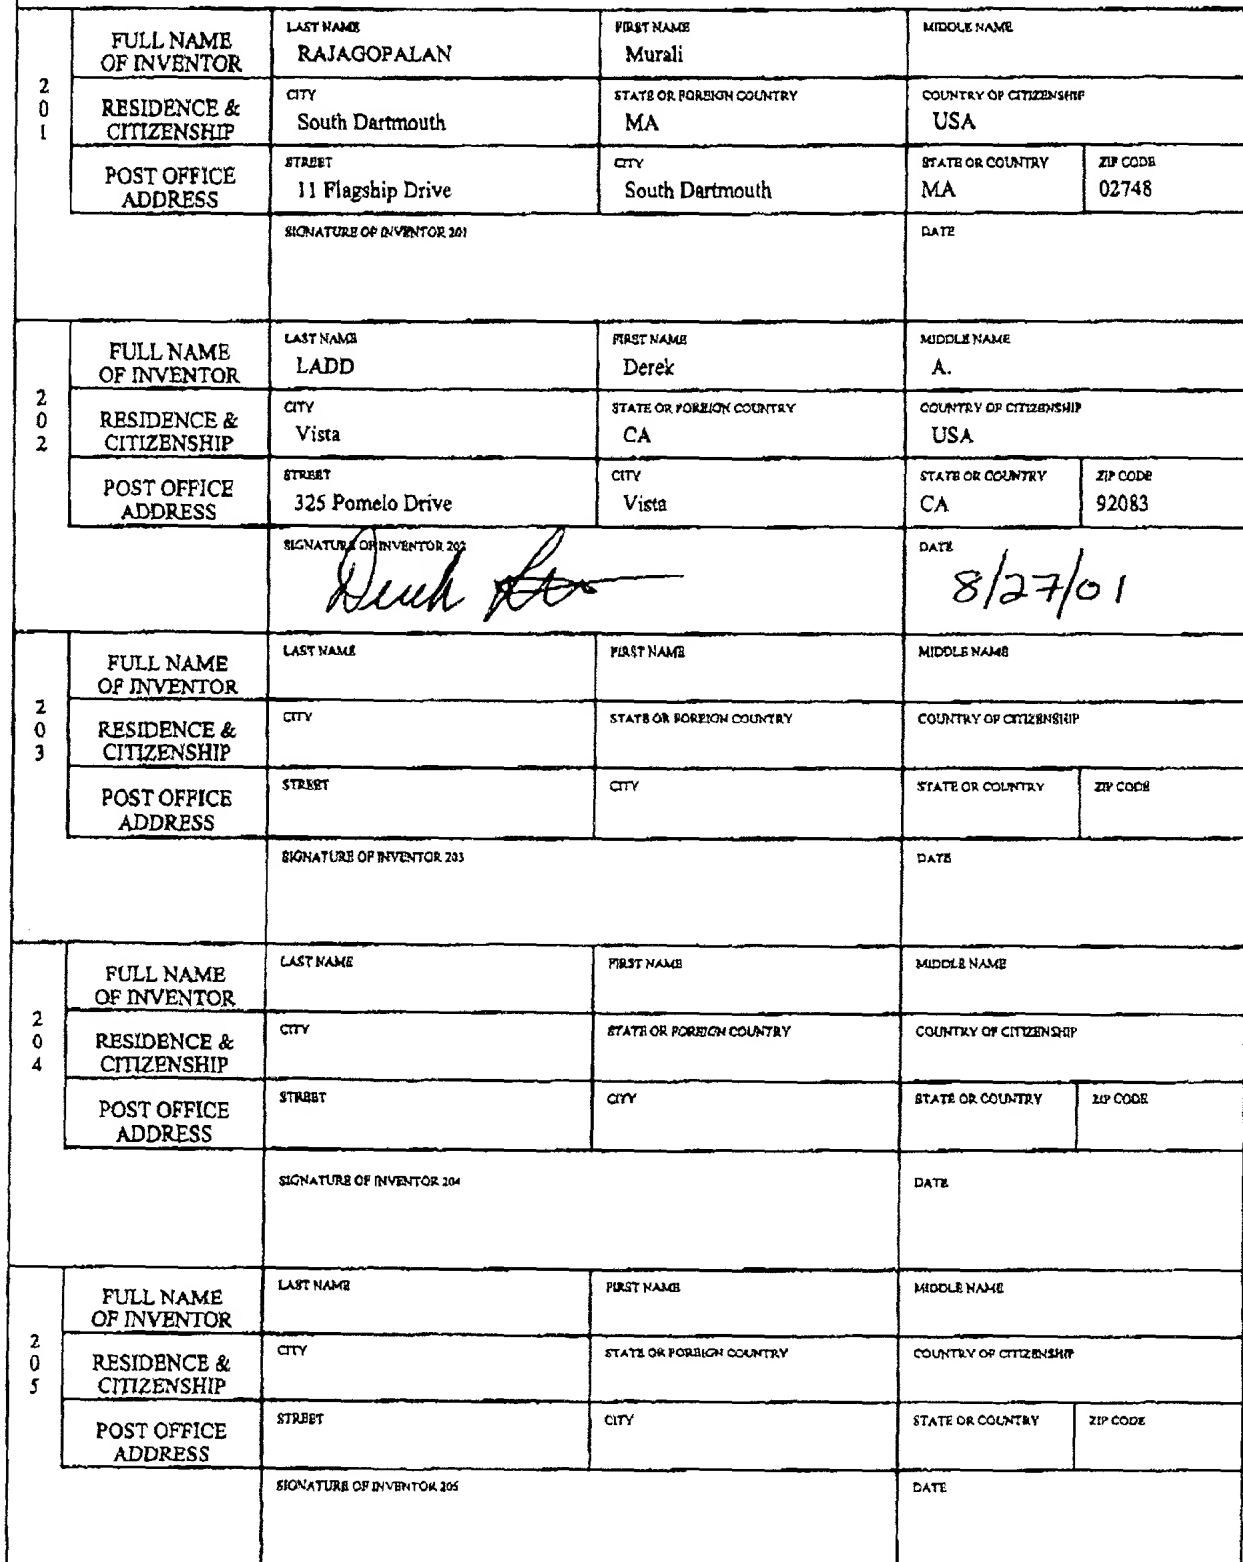 201
FULL NAME OF INVENTOR
LAST NAME RAJAGOPALAN
FIRST NAME Murali
MIDDLE NAME
RESIDENCE & CITIZENSHIP
CITY South Dartmouth
STATE OR FOREIGN COUNTRY MA
COUNTRY OF CITIZENSHIP USA
POST OFFICE ADDRESS
STREET 11 Flagship Drive
CITY South Dartmouth
STATE OR COUNTRY MA
ZIP CODE 02748
SIGNATURE OF INVENTOR 201
DATE
202
FULL NAME OF INVENTOR
LAST NAME LADD
FIRST NAME Derek
MIDDLE NAME A.
RESIDENCE & CITIZENSHIP
CITY Vista
STATE OR FOREIGN COUNTRY CA
COUNTRY OF CITIZENSHIP USA
POST OFFICE ADDRESS
STREET 325 Pomelo Drive
CITY Vista
STATE OR COUNTRY CA
ZIP CODE 92083
SIGNATURE OF INVENTOR 202
Derek
DATE 8/27/01
203
FULL NAME OF INVENTOR
LAST NAME
FIRST NAME
MIDDLE NAME
RESIDENCE & CITIZENSHIP
CITY
STATE OR FOREIGN COUNTRY
COUNTRY OF CITIZENSHIP
POST OFFICE ADDRESS
STREET
CITY
STATE OR COUNTRY
ZIP CODE
SIGNATURE OF INVENTOR 203
DATE
204
FULL NAME OF INVENTOR
LAST NAME
FIRST NAME
MIDDLE NAME
RESIDENCE & CITIZENSHIP
CITY
STATE OR FOREIGN COUNTRY
COUNTRY OF CITIZENSHIP
POST OFFICE ADDRESS
STREET
CITY
STATE OR COUNTRY
ZIP CODE
SIGNATURE OF INVENTOR 204
DATE
205
FULL NAME OF INVENTOR
LAST NAME
FIRST NAME
MIDDLE NAME
RESIDENCE & CITIZENSHIP
CITY
STATE OR FOREIGN COUNTRY
COUNTRY OF CITIZENSHIP
POST OFFICE ADDRESS
STREET
CITY
STATE OR COUNTRY
ZIP CODE
SIGNATURE OF INVENTOR 205
DATE